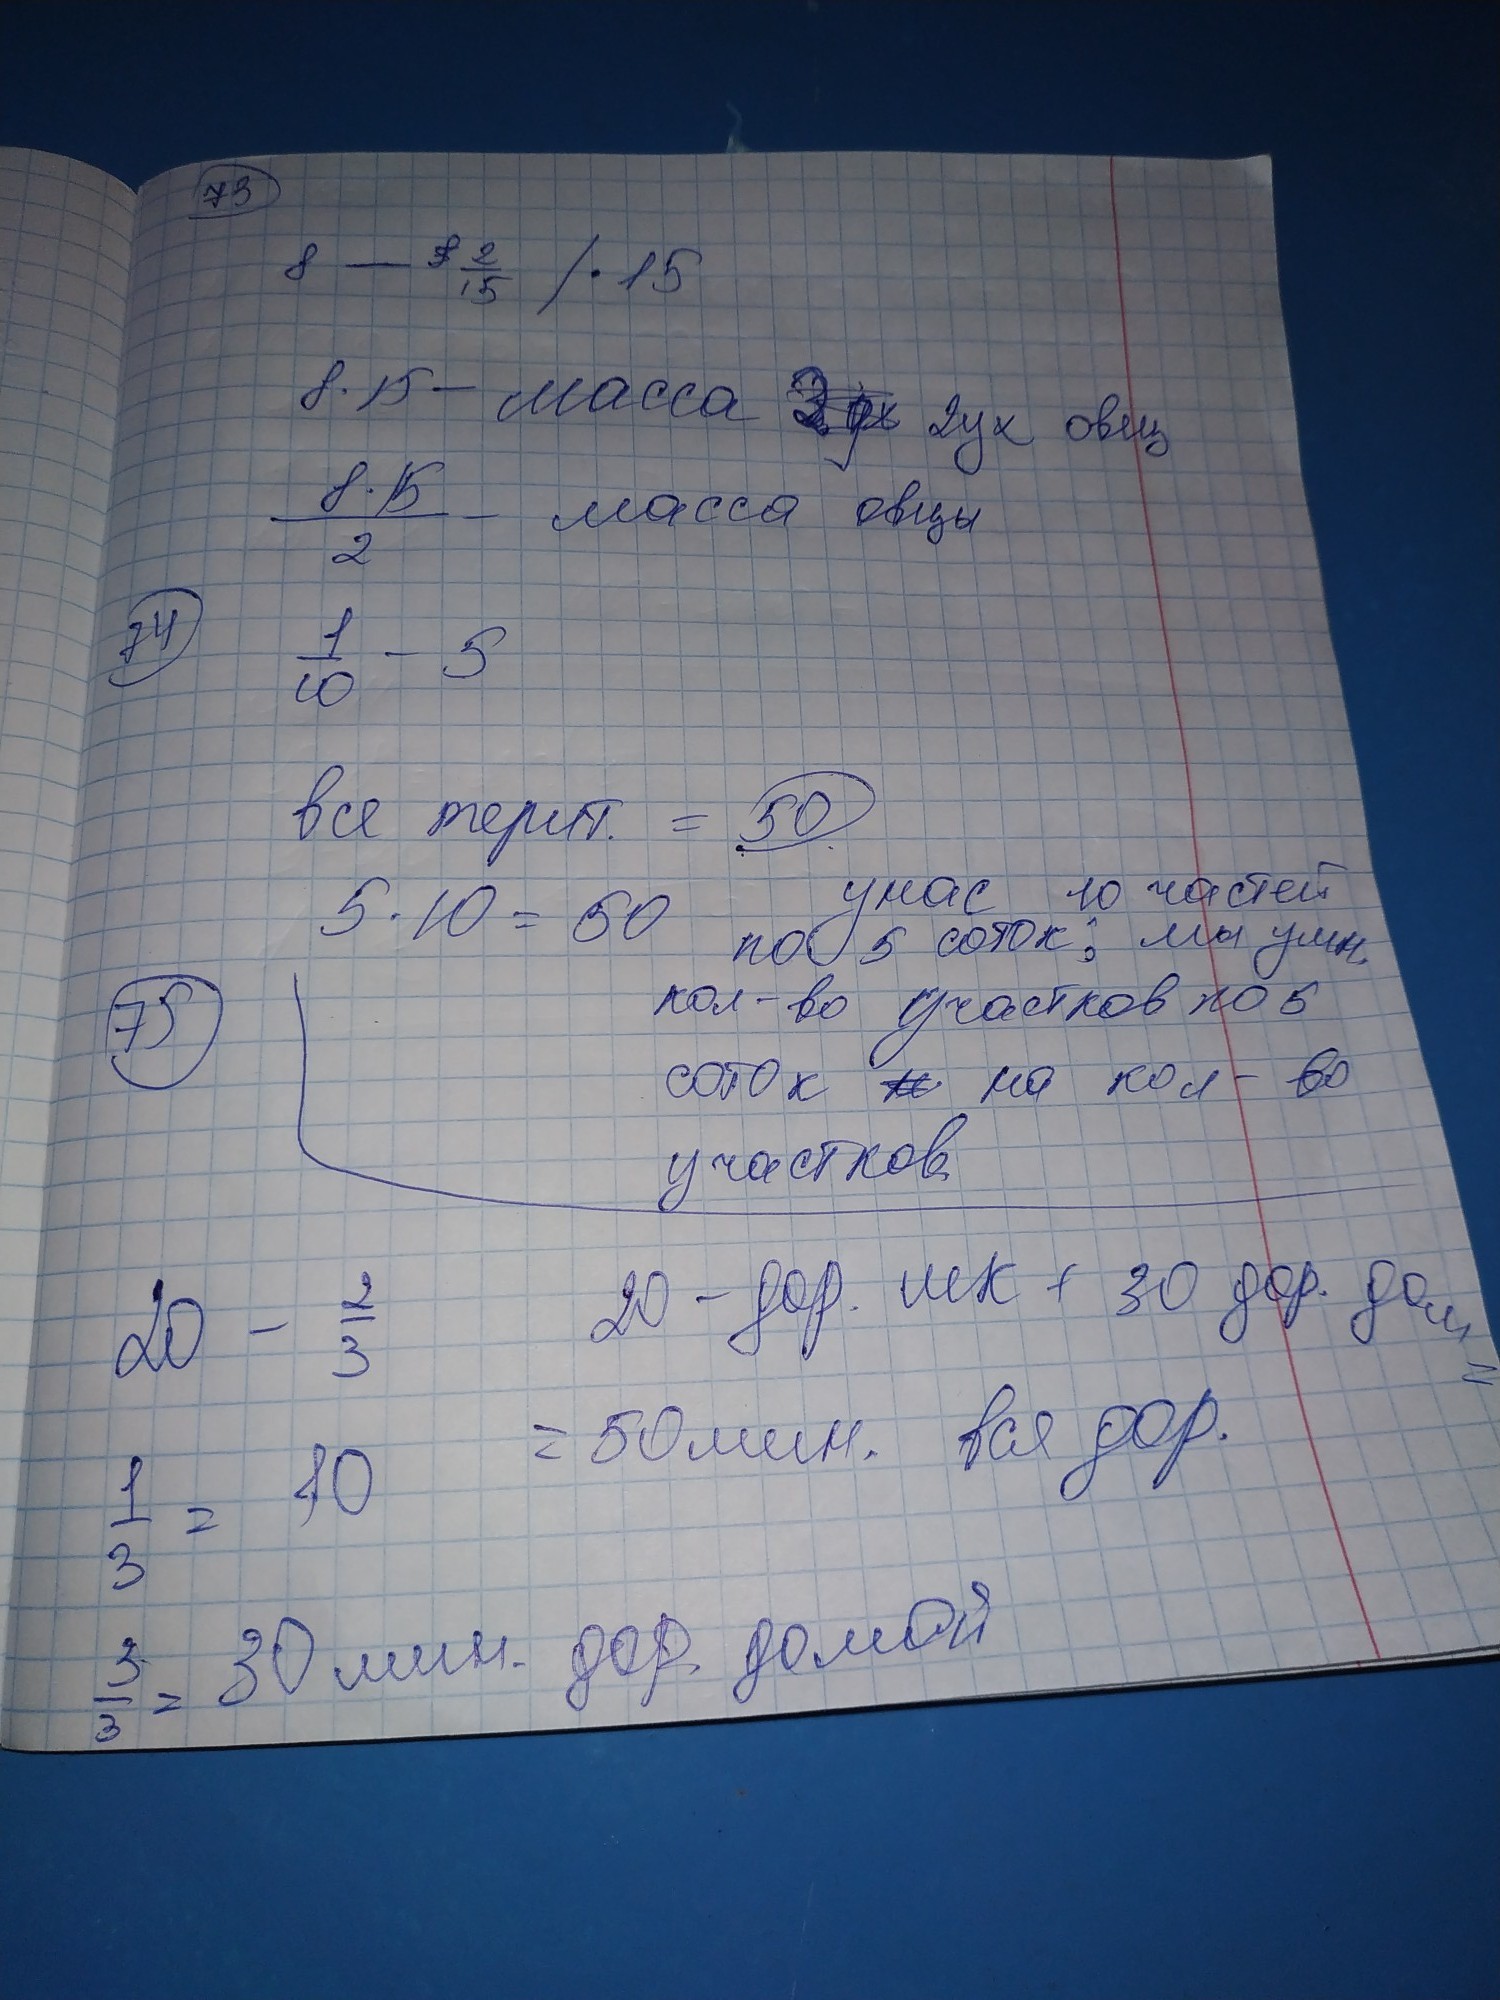 73
8 — 2/15 /·15
8·15 — масса 2ух овец
8·15/2 — масса овцы
74
1/10 - 5
все терит. = 50
5·10 = 50 у нас 10 частей
по 5 соток; мы умн.
75
кол-во участков по 5
соток на кол-во
участков
20 - 2/3
20 - дор. шк + 30 дор. дом =
= 50 мин. вся дор.
1/3 = 10
3/3 = 30 мин. дор. домой